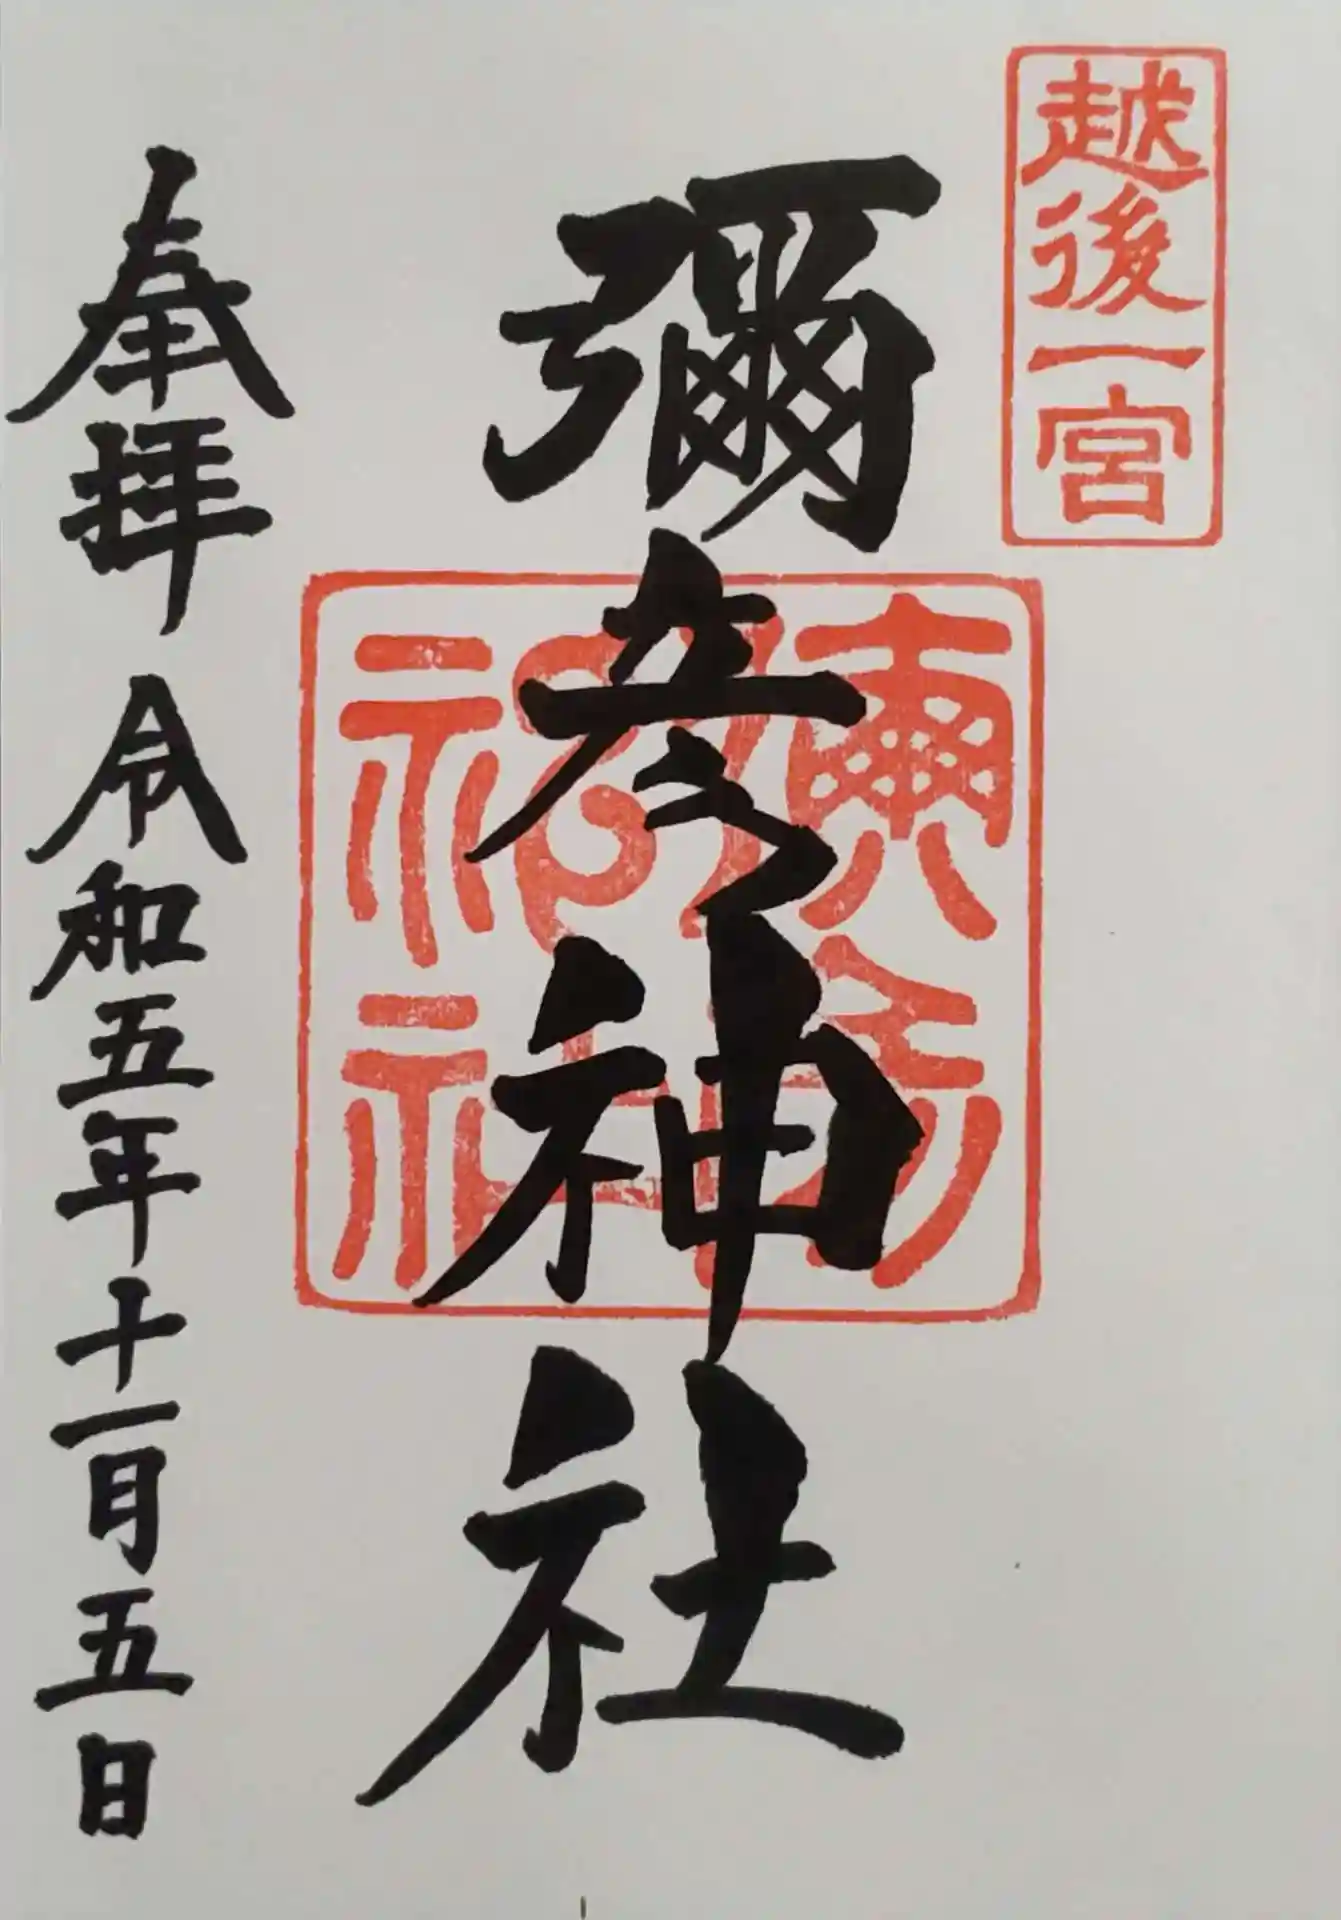 越後一宮
彌彦神社
奉拝 令和五年十一月五日